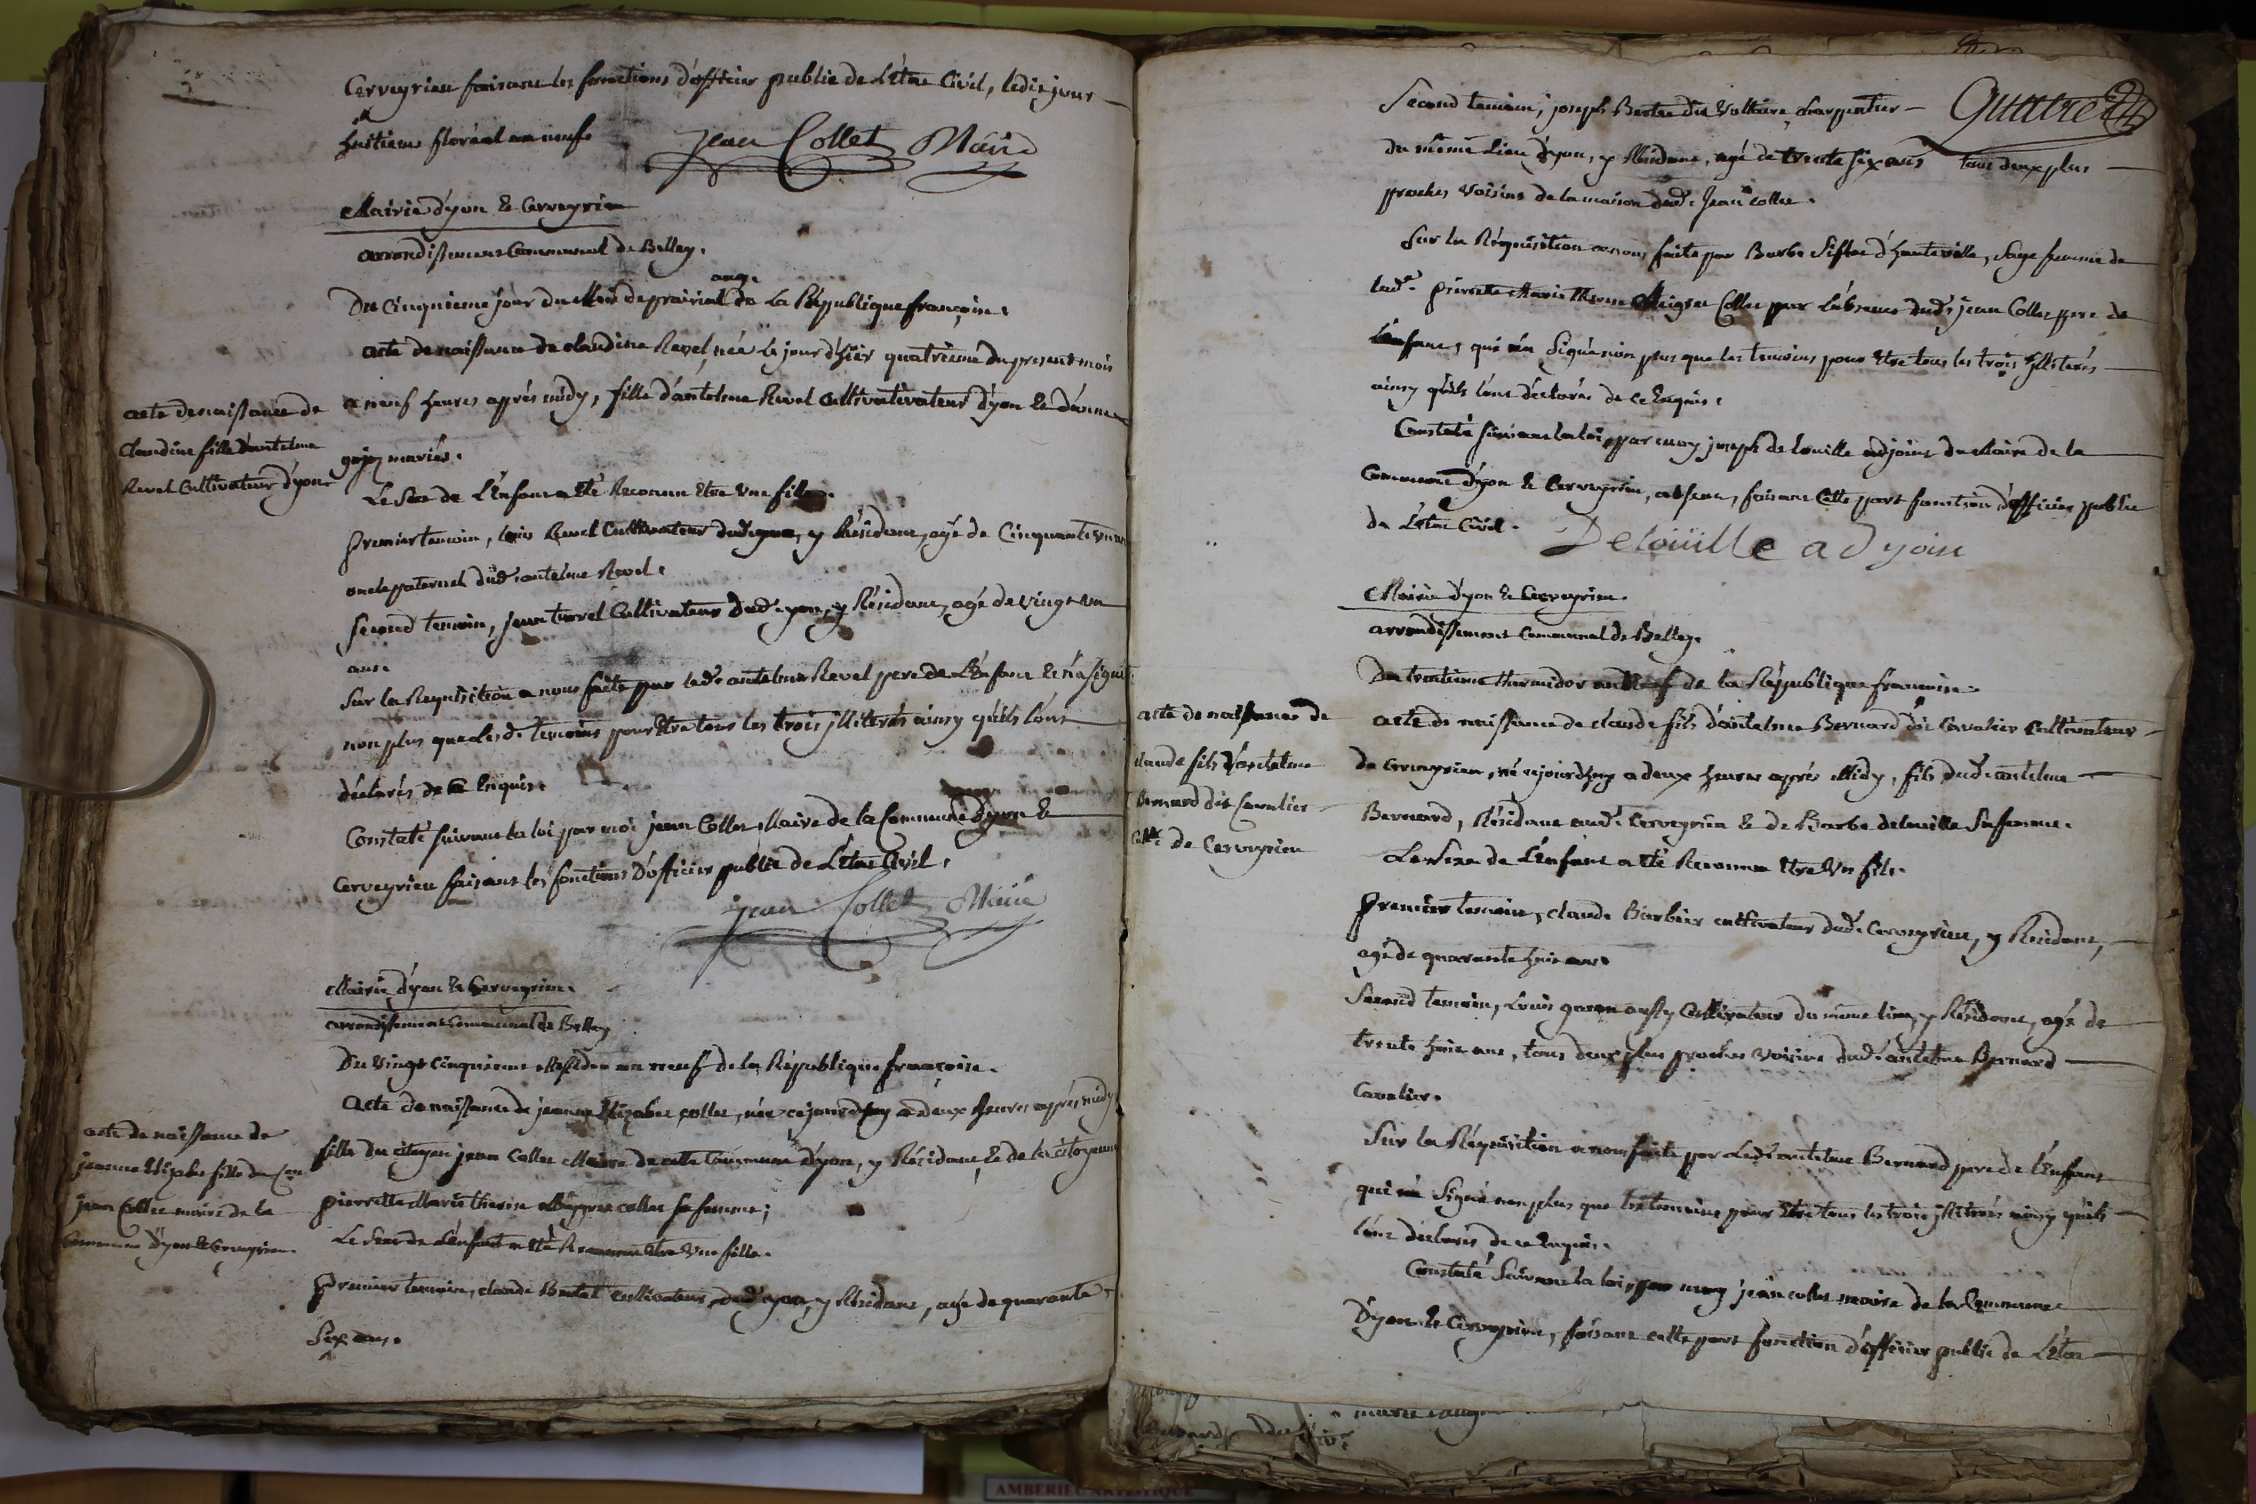 Cerveyrieu faisant les fonctions d'officier public de L'état Civil, ledit jour
huitieme floréal an neuf.
Jean Collet Maire
Mairie d'yon & Cerveyrieu
arrondissement Communal de Belley.
Du Cinquieme jour du Mois de prairial an 9. de La République françoise.
acte de naissance de claudine Revel, née le jour d'hier quatrieme du present mois
a neuf heures après midy, fille d'antelme Revel Cultivativateur d'yon & d'anne
mariés.
acte de naissance de
Claudine fille d'antelme
Revel Cultivateur d'yon
Le Sexe de L'Enfant a Eté Reconnu Etre Une fille.
premier temoin, Revel Cultivateur dud. yon, y Résidant, agé de Cinquante
oncle paternel dud. antelme Revel.
Second temoin, Cultivateur dud. yon, y Résidant, agé de vingt un
ans.
Sur la Requisition a nous faite par led. antelme Revel pere de L'Enfant & n'a signé
non plus que Lesd. temoins pour Etre tous les trois illiterés ainsy qu'ils l'ont
déclarés de ce Enquis.
Constaté suivant la loi par moi jean Collet, Maire de la Commune d'yon &
Cerveyrieu faisant les fonctions D'officier public de L'état Civil.
jean Collet Maire
Mairie d'yon & Cerveyrieu.
arrondissement Communal de Belley
Du Vingt Cinquieme Messidor an neuf de la République françoise.
Acte de naissance de jeanne Elizabet collet, née cejourd'huy a deux heures après midy
fille du citoyen jean Collet Maire de cette Commune d'yon, y Résidant, & de la citoyenne
pierrette Marie therese collet sa femme;
acte de naissance de
jeanne Elizabet fille du
jean Collet maire de la
Commune d'yon & Cerveyrieu.
Le Sexe de L'enfant a Eté Reconnu Etre Une fille.
premier temoin, claude Cultivateur dud. yon, y Résidant, agé de quarante
Six ans.
Quatre
Second temoin, joseph dit Voltaire, charpentier
du même Lieu d'yon, y Résidant, agé de trente six ans tous deux plus
proches Voisins de la maison dud. Jean collet.
Sur la Réquisition a nous faite par Barbe d'hauteville, Sage femme de
lad. pierrette Marie therese Collet par L'absence dud. jean Collet pere de
L'enfant, qui n'a Signé non plus que les temoins pour Etre tous les trois illiterés
ainsy qu'ils l'ont déclarés de ce Enquis.
Constaté suivant la loi, par moy joseph delouille adjoint du Maire de la
Commune d'yon & Cerveyrieu, absent, faisant Cette part fonction d'officier public
de L'état Civil.
Delouille adjoin
Mairie d'yon & Cerveyrieu.
arrondissement Communal de Belley.
Du trentieme thermidor an Neuf de la République françoise.
acte de naissance de claude fils d'antelme Bernard dit Cavalier Cultivateur
de Cerveyrieu, né cejourd'huy a deux heures après Midy, fils dud. antelme
Bernard, Résidant aud. Cerveyrieu & de Barbe delouille Sa femme.
acte de naissance de
claude fils d'antelme
Bernard dit Cavalier
de Cerveyrieu
Le Sexe de L'Enfant a Eté Reconnu Etre Un fils.
Premier temoin, claude Barbier cultivateur dud. Cerveyrieu, y Residant,
agé de quarante huit ans.
Second temoin, Louis Cultivateur du même lieu, y Résidant, agé de
trente huit ans, tous deux plus proches Voisins dud. antelme Bernard
Cavalier.
Sur la Réquisition a nous faite par Led. antelme Bernard pere de L'Enfant
qui n'a Signé non plus que les temoins pour Etre tous les trois illiterés ainsy qu'ils
l'ont déclarés de ce Enquis.
Constaté Suivant la loi, par moy jean collet maire de la Commune
D'yon & Cerveyrieu, faisant cette part fonction d'officier public de L'état
AMBERIEU ARTISTIQUE